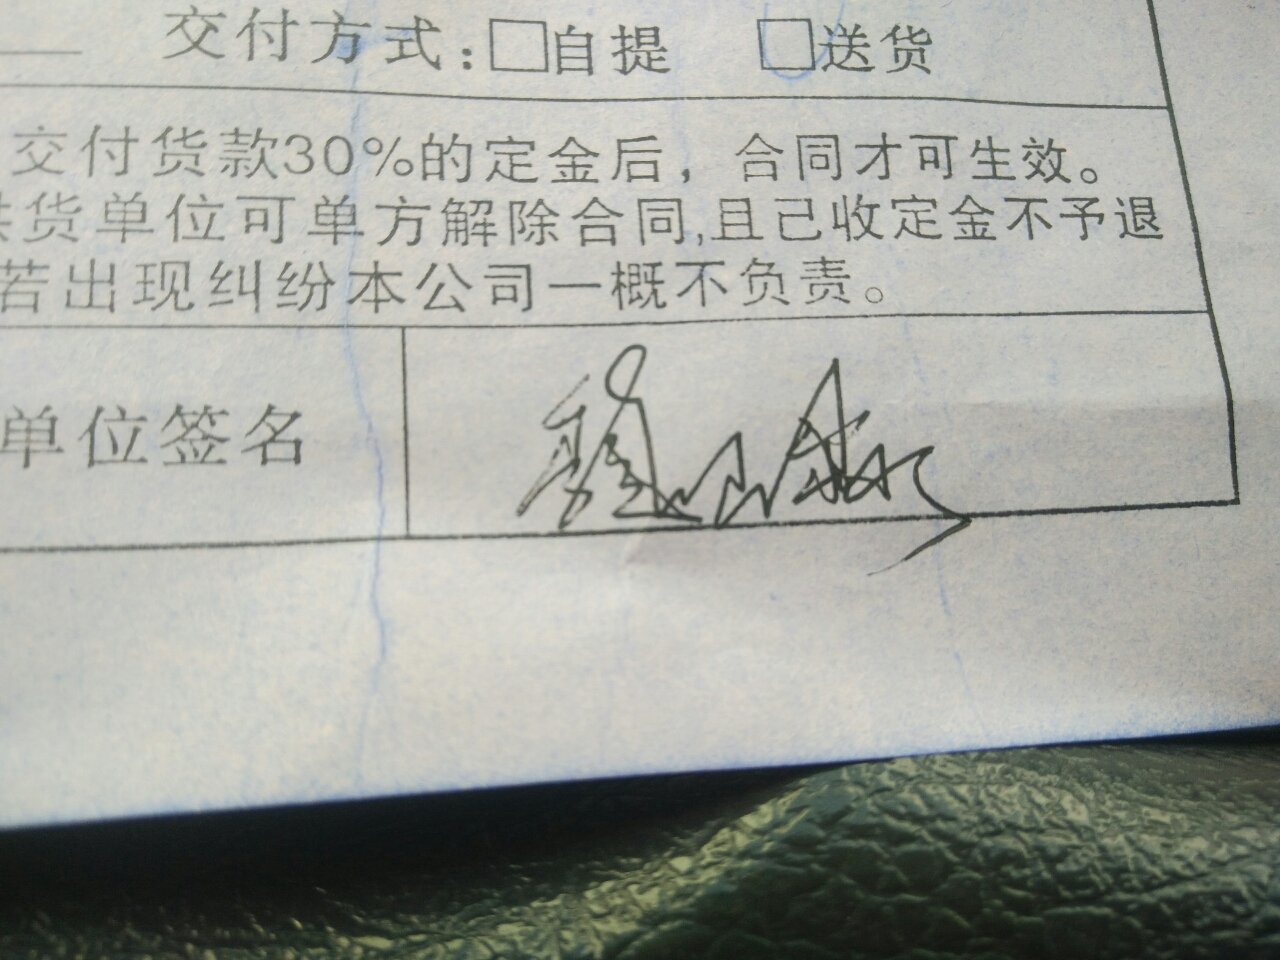 交付方式：□自提 □送货
交付货款30%的定金后，合同才可生效。
货单位可单方解除合同,且已收定金不予退
若出现纠纷本公司一概不负责。
单位签名